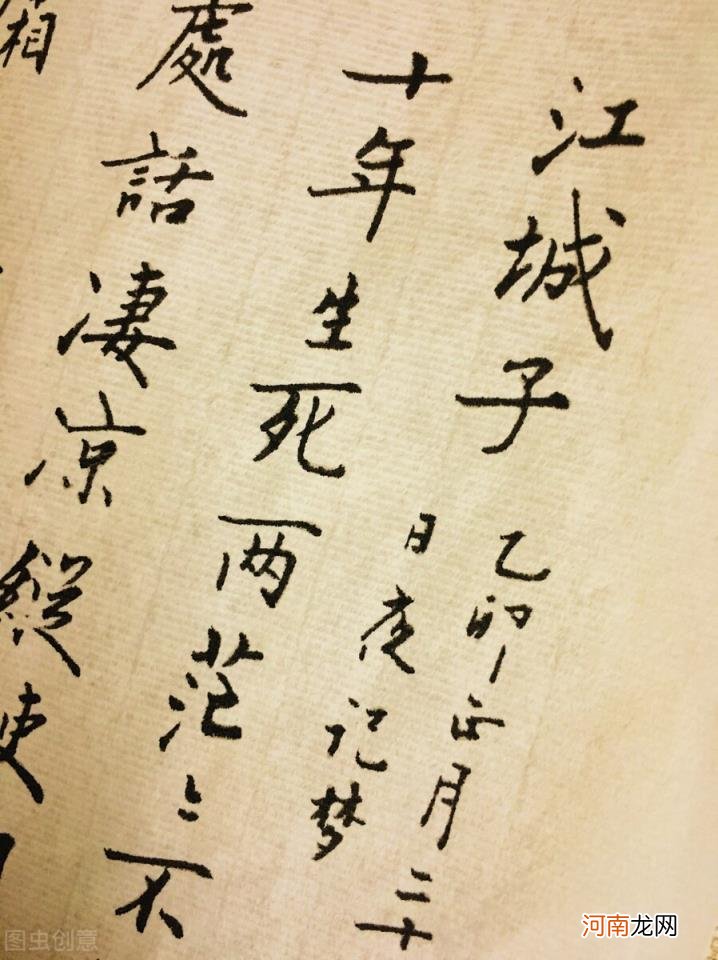 江城子
乙卯正月二十
日夜记梦
十年生死两茫々不
處話淒凉縱使
霜
图虫创意
河南龙网